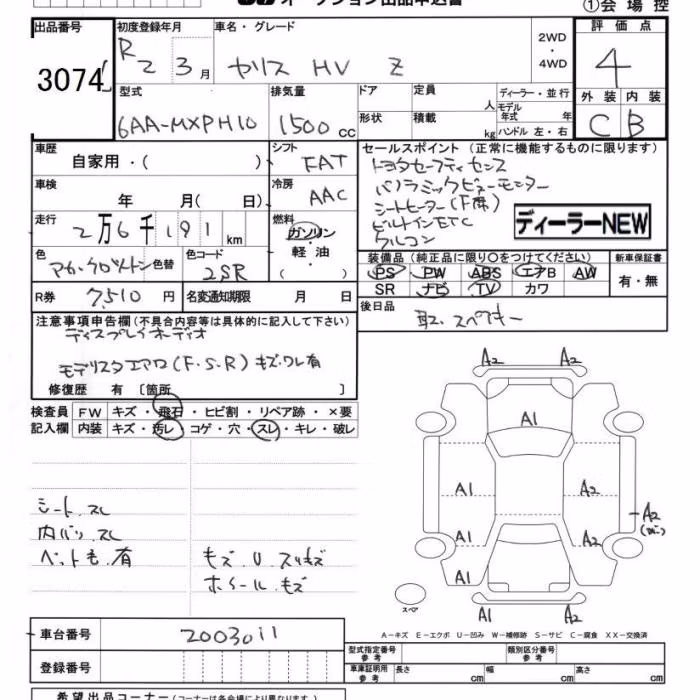 オークション出品申込書
①会場控
出品番号
3074
初度登録年月
R2 3月
車名・グレード
ヤリス HV Z
2WD
・
4WD
評価点
4
外装 内装
C B
型式
6AA-MXPH10
排気量
1500 cc
ドア
形状
定員
人
積載
kg
ディーラー・並行
モデル年式 年
ハンドル 左・右
車歴
自家用・( )
シフト
FAT
車検
年 月( 日)
冷房
AAC
走行
2万6千191km
燃料
ガソリン
・
軽油
( )
色
アカ・クロツートン
色替
色コード
2SR
R券
7,510 円
名変通知期限 月 日
セールスポイント (正常に機能するものに限ります)
トヨタセーフティセンス
パノラミックビューモニター
シートヒーター(F席)
ビルトインETC
ディーラーNEW
装備品 (純正品に限り〇をつけてください)
PS PW ABS エアB AW
SR ナビ TV カワ
新車保証書
有・無
後日品
取、スペアキー
注意事項申告欄 (不具合内容等は具体的に記入して下さい)
ディスプレイオーディオ
モデリスタエアロ(F.S.R)キズ・ワレ有
修復歴 有 〔箇所 〕
検査員記入欄
FW キズ・飛石・ヒビ割・リペア跡・×要
内装 キズ・汚レ・コゲ・穴・スレ・キレ・破レ
シート、スレ
ペットも、有
キズ、U、スリキズ
ホイール、キズ
A2 A2
A1
A1 A2
A2
A1 A2
A1
スペア
A1 A2
A-キズ E-エクボ U-凹み W-補修跡 S-サビ C-腐食 XX-交換済
車台番号
2003011
登録番号
型式指定番号
参考
類別区分番号
参考
車庫証明用
参考
長さ cm 幅 cm 高さ cm
希望出品コーナー (コーナーは各会場により異なります)